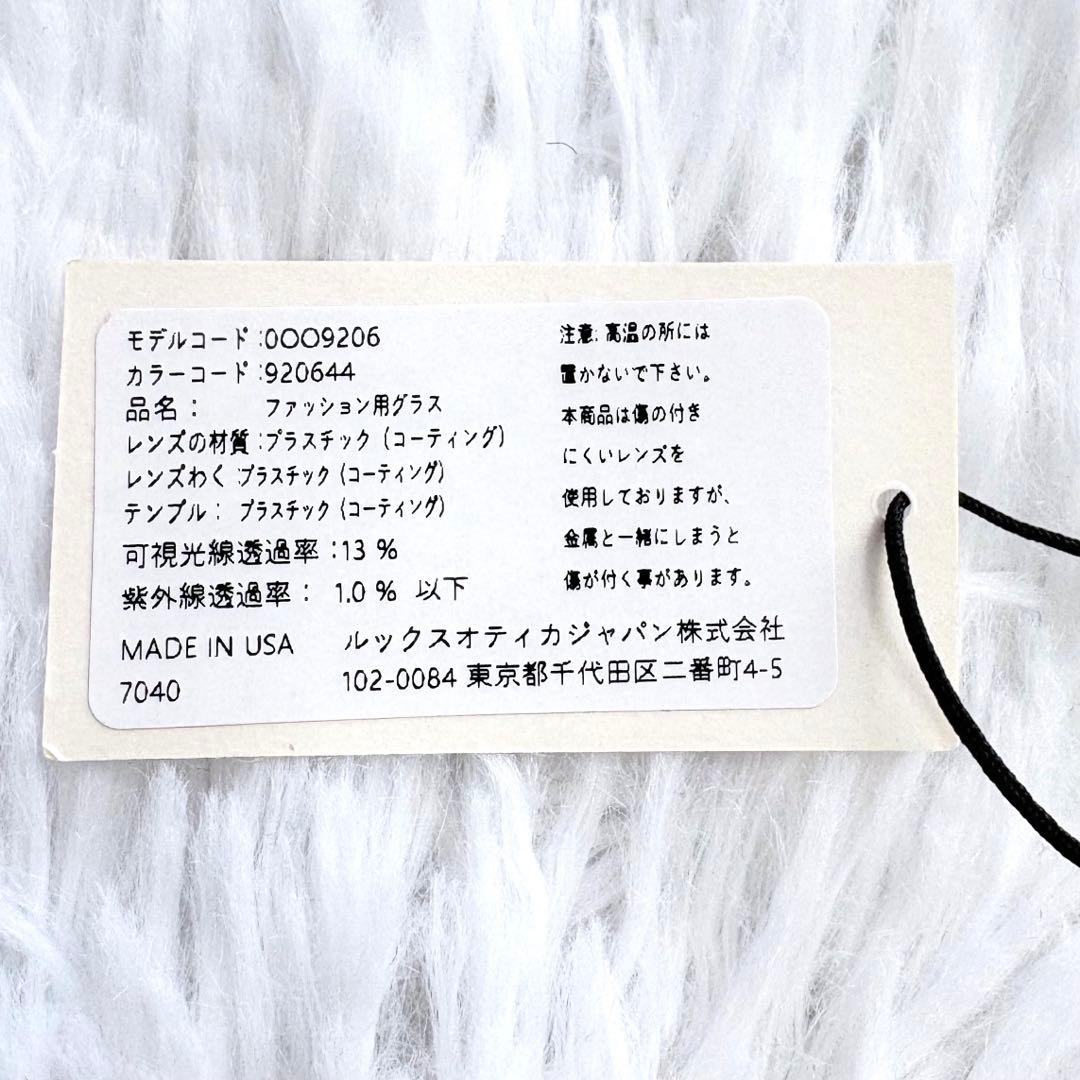 モデルコード:0OO9206
カラーコード:920644
品名： ファッション用グラス
レンズの材質:プラスチック (コーティング)
レンズわく:プラスチック (コーティング)
テンプル： プラスチック (コーティング)
可視光線透過率:13 %
紫外線透過率： 1.0 % 以下
MADE IN USA
7040
注意: 高温の所には
置かないで下さい。
本商品は傷の付き
にくいレンズを
使用しておりますが、
金属と一緒にしまうと
傷が付く事があります。
ルックスオティカジャパン株式会社
102-0084 東京都千代田区二番町4-5